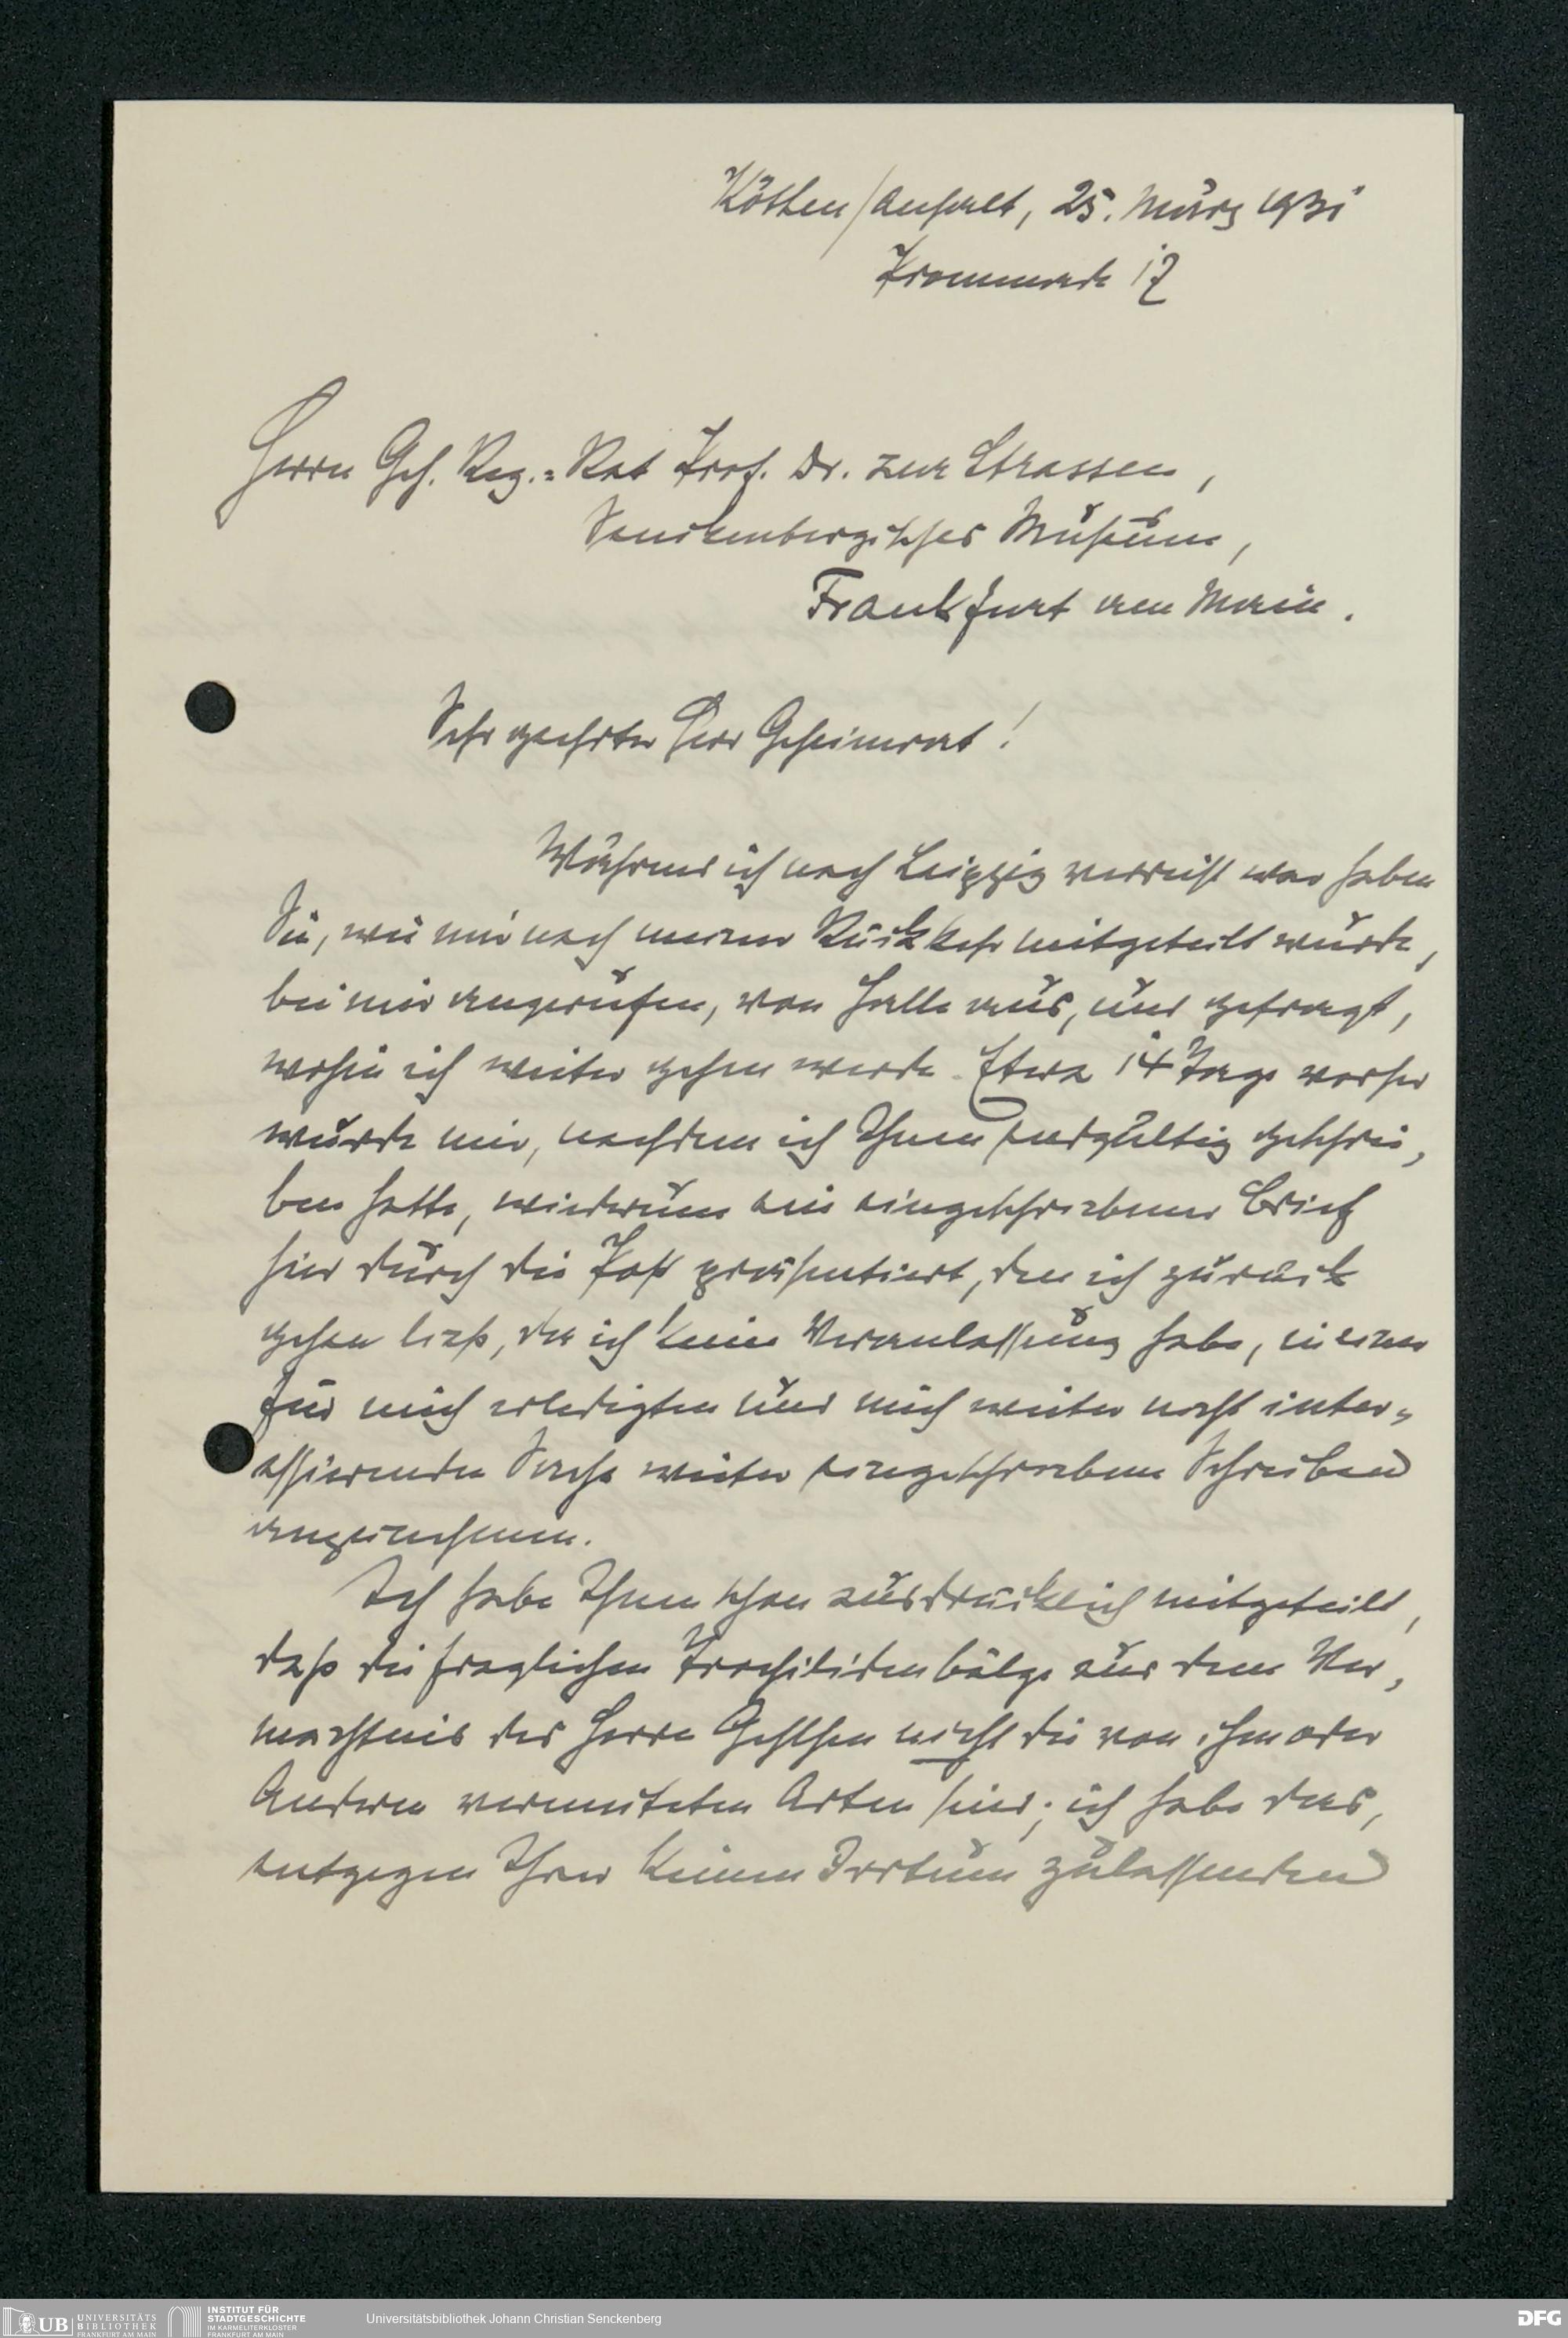 Köthen/Anhalt, 25. März 1931
Promenade 17
Herrn Geh. Reg.=Rat Prof. Dr. zur Strassen,
Senckenbergisches Museum,
Frankfurt am Main.
Sehr geehrter Herr Geheimrat!
Während ich nach Leipzig verreist war haben
Sie, wie mir nach meiner Rückkehr mitgeteilt wurde,
bei mir angerufen, von Halle aus, und gefragt,
wohin ich weiter gehen werde. Etwa 14 Tage vorher
wurde mir, nachdem ich Ihnen endgültig geschrie-
ben hatte, wiederum ein eingeschriebener Brief
hier durch die Post präsentiert, den ich zurück
gehen ließ, da ich keine Veranlassung habe, in einer
für mich erledigten und mich weiter nicht inter-
essierenden Sache weiter eingeschriebene Schreiben
anzunehmen.
Ich habe Ihnen schon ausdrücklich mitgeteilt,
daß die fraglichen Trochilidenbälge aus dem Ver-
mächtnis des Herrn nicht die von ihm oder
Anderen vermuteten Arten sind; ich habe das,
entgegen Ihrer keinen Irrtum zulassenden
UB UNIVERSITÄTS BIBLIOTHEK FRANKFURT AM MAIN
INSTITUT FÜR STADTGESCHICHTE IM KARMELITERKLOSTER FRANKFURT AM MAIN
Universitätsbibliothek Johann Christian Senckenberg
DFG